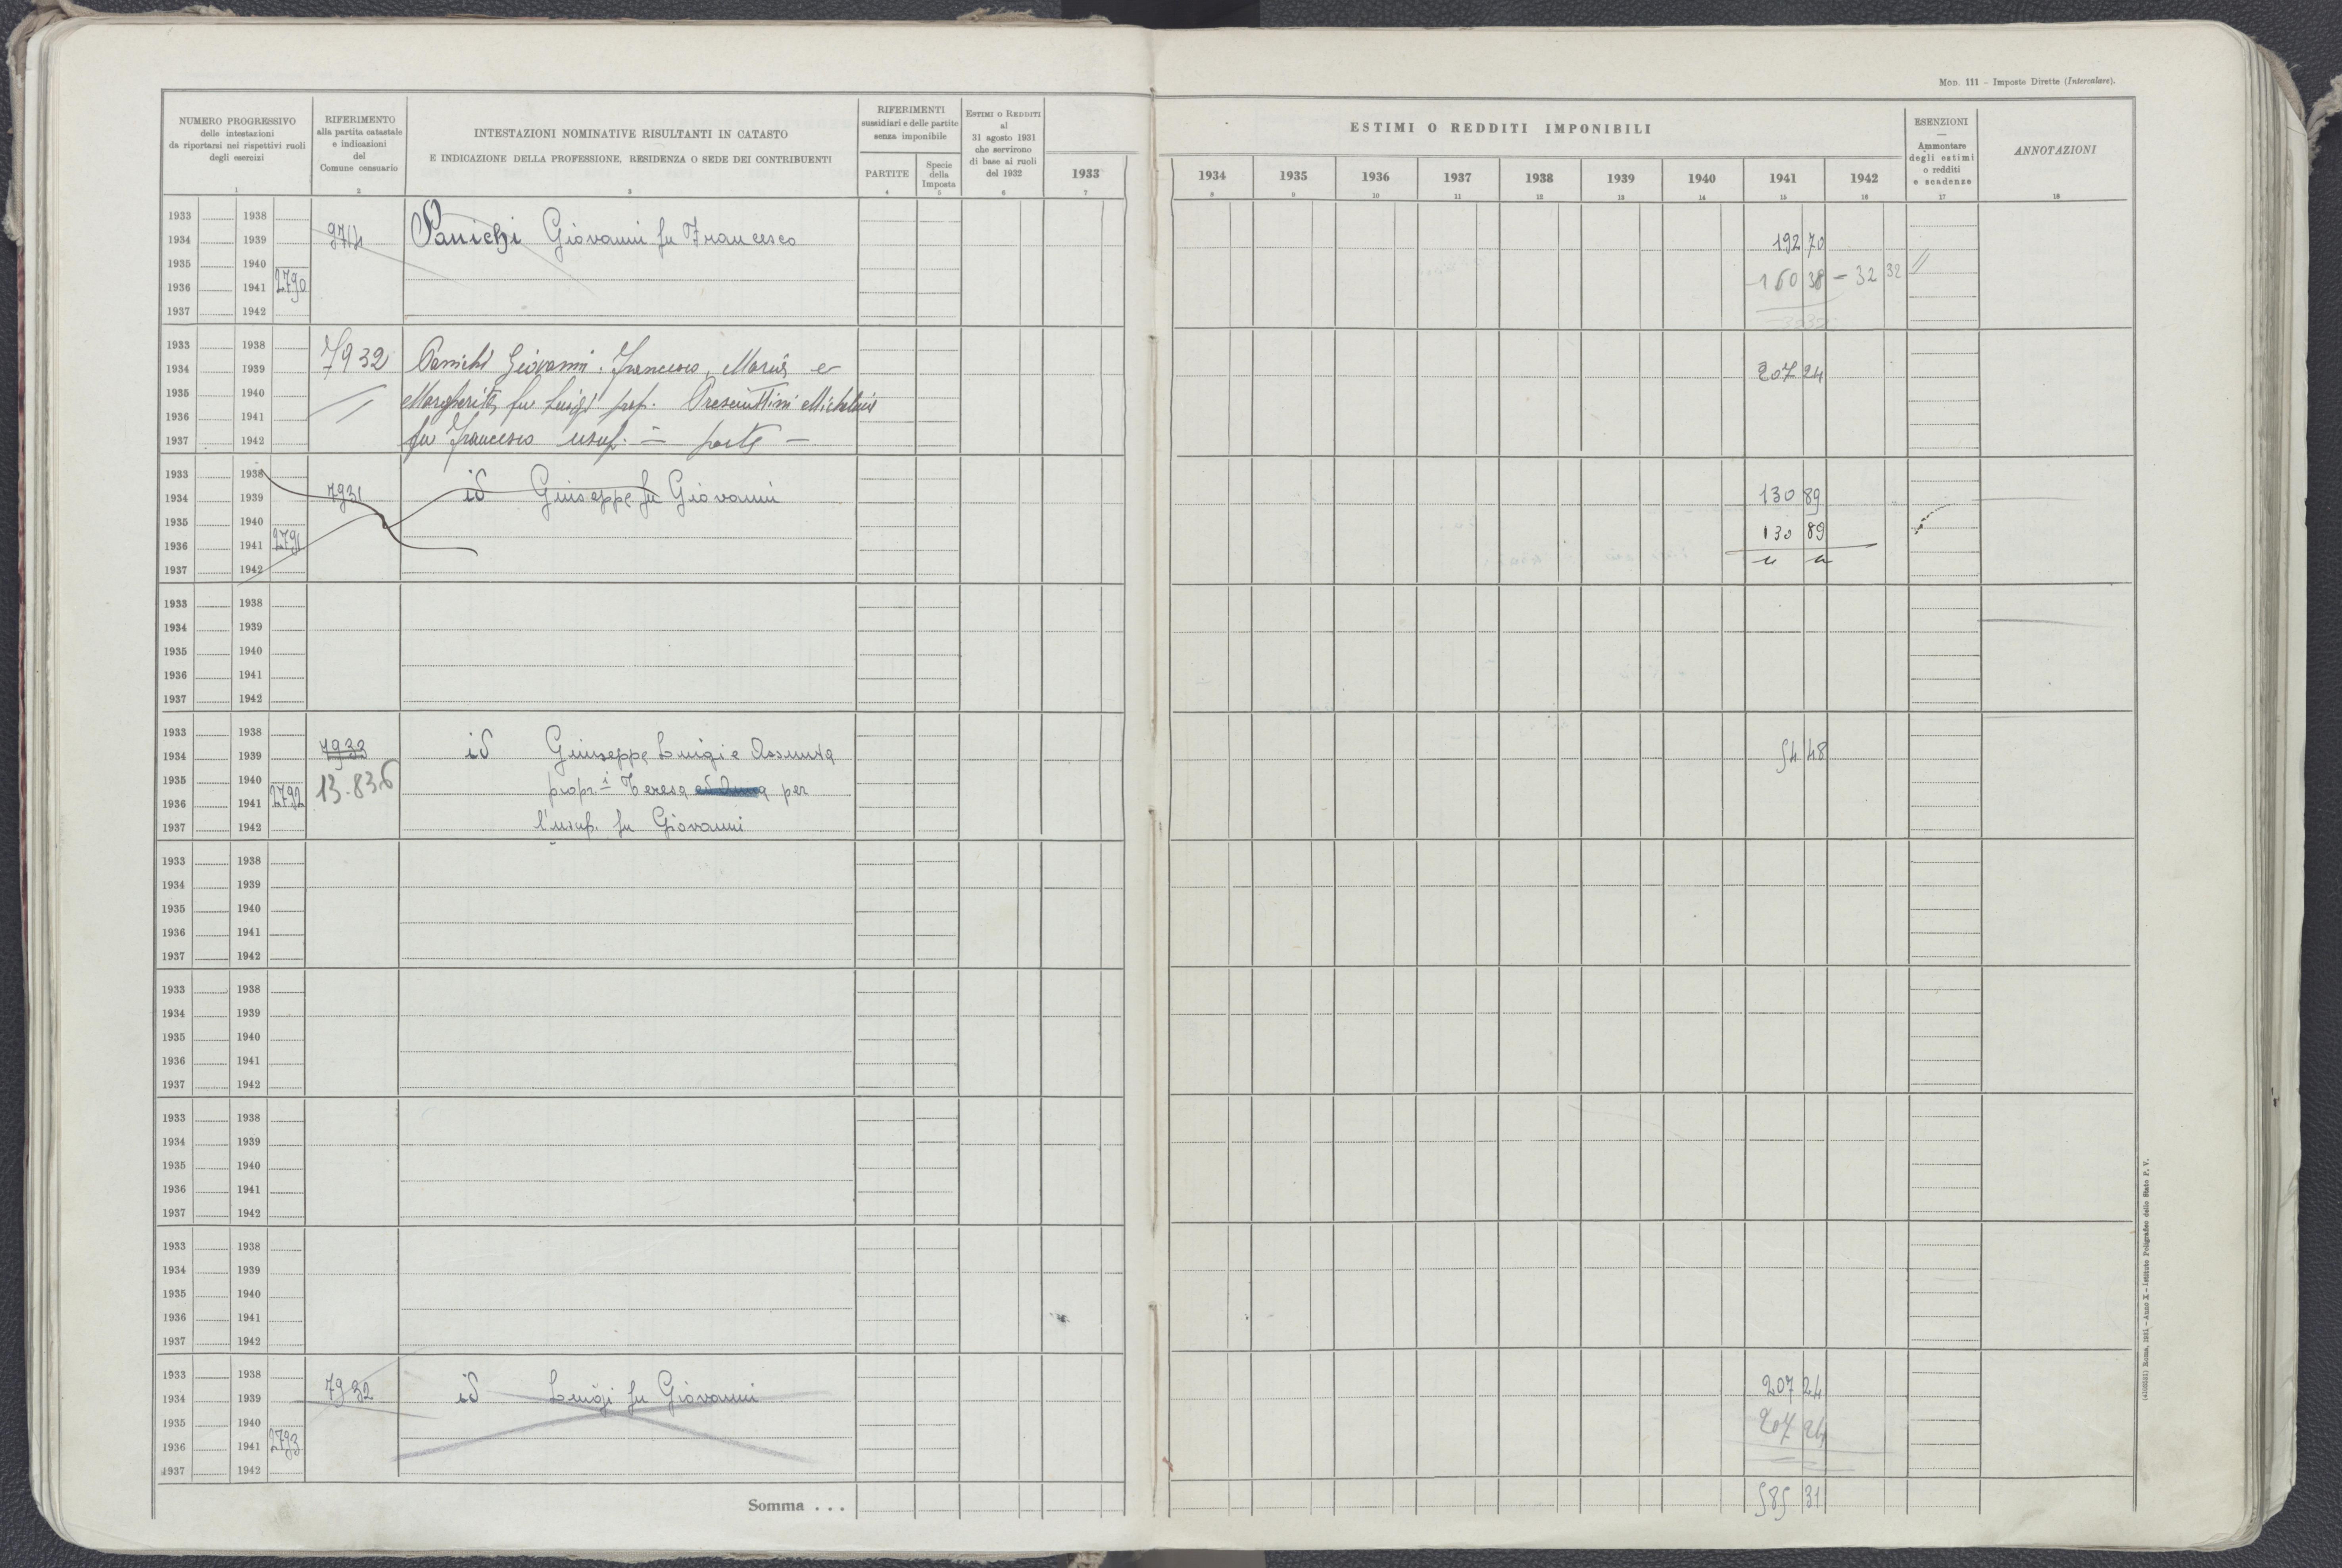 Mod. 111 - Imposte Dirette (Intercalare).
NUMERO PROGRESSIVO
delle intestazioni
da riportarsi nei rispettivi ruoli
degli esercizi
1
RIFERIMENTO
alla partita catastale
e indicazioni
del
Comune censuario
2
INTESTAZIONI NOMINATIVE RISULTANTI IN CATASTO
E INDICAZIONE DELLA PROFESSIONE, RESIDENZA O SEDE DEI CONTRIBUENTI
3
RIFERIMENTI
sussidiari e delle partite
senza imponibile
PARTITE
4
Specie
della
Imposta
5
ESTIMI O REDDITI
al
31 agosto 1931
che servirono
di base ai ruoli
del 1932
6
1933
7
ESTIMI O REDDITI IMPONIBILI
1934 1935 1936 1937 1938 1939 1940 1941 1942
8 9 10 11 12 13 14 15 16
ESENZIONI
—
Ammontare
degli estimi
o redditi
e scadenze
17
ANNOTAZIONI
18
1933 1938
1934 1939 9714 Panichi Giovanni fu Francesco 192 70
1935 1940
1936 1941 2790 160 38 - 32 32
1937 1942
1933 1938
1934 1939 7932 Panichi Giovanni, Francesco, Maria e 207 24
1935 1940 Margherita fu Luigi prop.
1936 1941
1937 1942 fu Francesco usuf. in parte -
1933 1938
1934 1939 7931 id Giuseppe fu Giovanni 130 89
1935 1940
1936 1941 2791 130 89
1937 1942 " "
1933 1938
1934 1939
1935 1940
1936 1941
1937 1942
1933 1938
1934 1939 7933 id Giuseppe Luigi e Assunta 54 48
1935 1940 13.836 propr.i Teresa per
1936 1941 2792
1937 1942 l'usuf. fu Giovanni
1933 1938
1934 1939
1935 1940
1936 1941
1937 1942
1933 1938
1934 1939
1935 1940
1936 1941
1937 1942
1933 1938
1934 1939
1935 1940
1936 1941
1937 1942
1933 1938
1934 1939
1935 1940
1936 1941
1937 1942
1933 1938
1934 1939 7932 id Luigi fu Giovanni 207 24
1935 1940 207 24
1936 1941 2793
1937 1942
Somma . . . 585 31
Roma, 1931 - Anno X - Istituto Poligrafico dello Stato P. V.